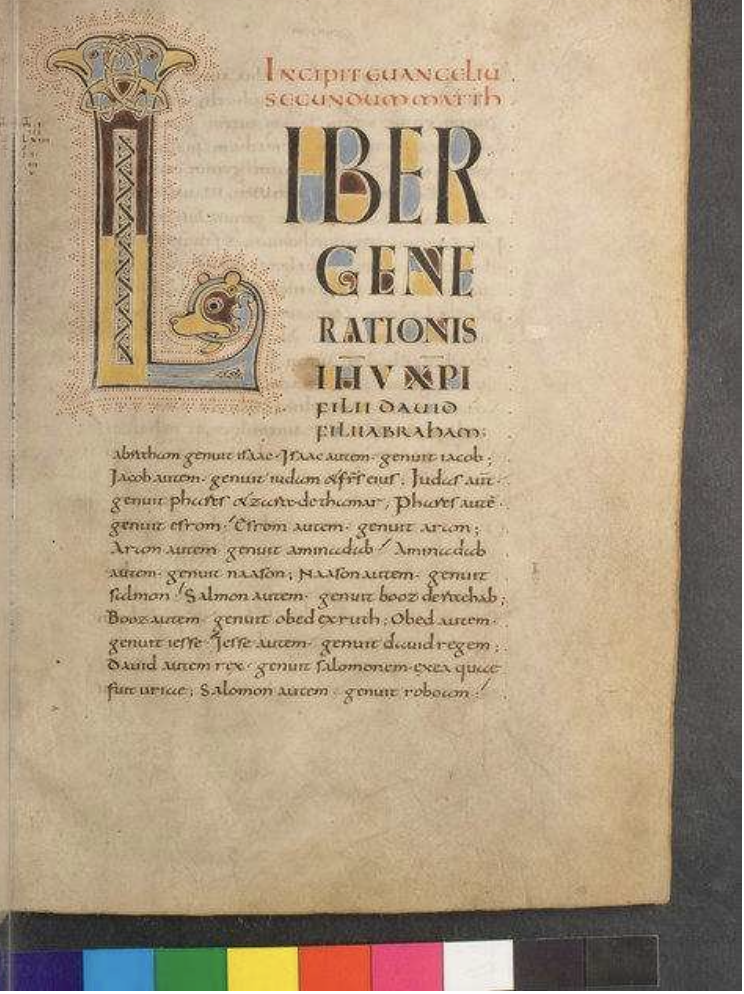 INCIPIT EUANGELIU
SECUNDUM MATTH
LIBER
GENE
RATIONIS
IHV XPI
FILII DAUID
FILII ABRAHAM;
abraham genuit isaac · Isaac autem · genuit iacob ;
Jacob autem · genuit iudam & frs eius ; Judas aut ·
genuit phares & zara · de thamar ; Phares autē ·
genuit esrom · Esrom autem · genuit aram ;
Aram autem · genuit aminadab Aminadab
autem · genuit naason ; Naason autem · genuit
salmon Salmon autem · genuit booz de rachab ;
Booz autem · genuit obed ex ruth ; Obed autem ·
genuit iesse Jesse autem · genuit dauid regem ;
David autem rex · genuit salomonem · ex ea quae
fuit uriae ; Salomon autem · genuit roboam :